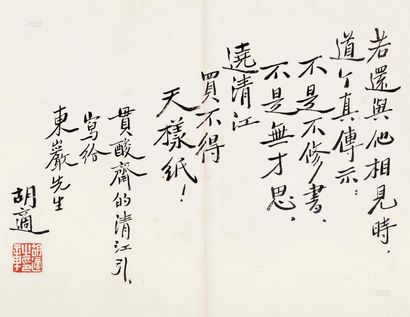 若還與他相見時，
道个真傳示：
不是不修書，
不是無才思，
遶清江
買不得
天樣紙！
貫酸齋的清江引，
寫給
東巖先生
胡適